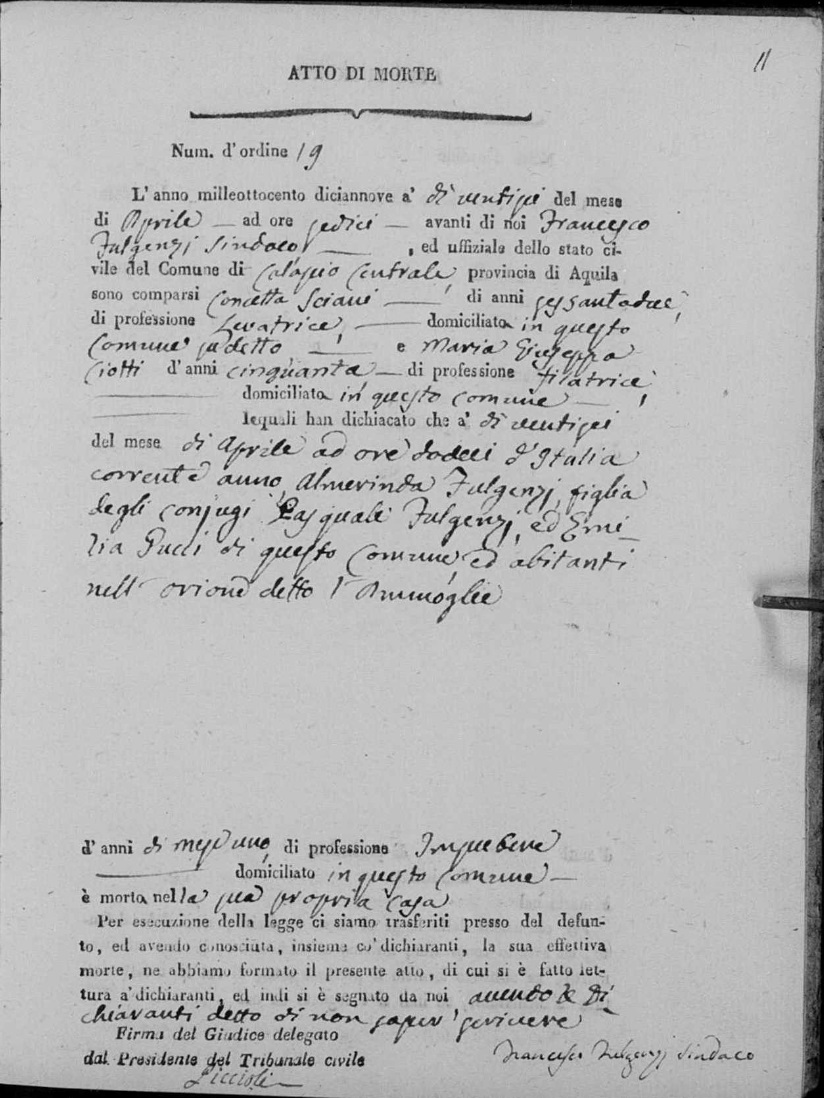 11
ATTO DI MORTE
Num. d'ordine 19
L'anno milleottocento diciannove a' dì ventisei del mese
di Aprile — ad ore sedici — avanti di noi Francesco
Fulgenzj Sindaco — , ed uffiziale dello stato ci-
vile del Comune di Calascio Centrale provincia di Aquila
sono comparsi Concetta Sciani — di anni sessantadue,
di professione Levatrice, — domiciliata in questo
Comune sudetto — e Maria Giuseppa
Ciotti d'anni cinquanta — di professione filatrice
domiciliata in questo comune —
lequali han dichiacato che a' dì ventisei
del mese di Aprile ad ore dodeci d'Italia
corrente anno, Almerinda Fulgenzj figlia
degli conjugi Pasquale Fulgenzj, ed Emi-
lia Pucci di questo Comune, ed abitanti
nell' orione detto l'
d'anni di mesi uno, di professione
domiciliato in questo Comune —
è morta nella sua propria casa
Per esecuzione della legge ci siamo trasferiti presso del defun-
to, ed avendo conosciuta, insieme co' dichiaranti, la sua effettiva
morte, ne abbiamo formato il presente atto, di cui si è fatto let-
tura a' dichiaranti, ed indi si è segnato da noi avendo le Di-
chiaranti detto di non saper scrivere
Firma del Giudice delegato
dal Presidente del Tribunale civile
Francesco Fulgenzj Sindaco
Piccioli